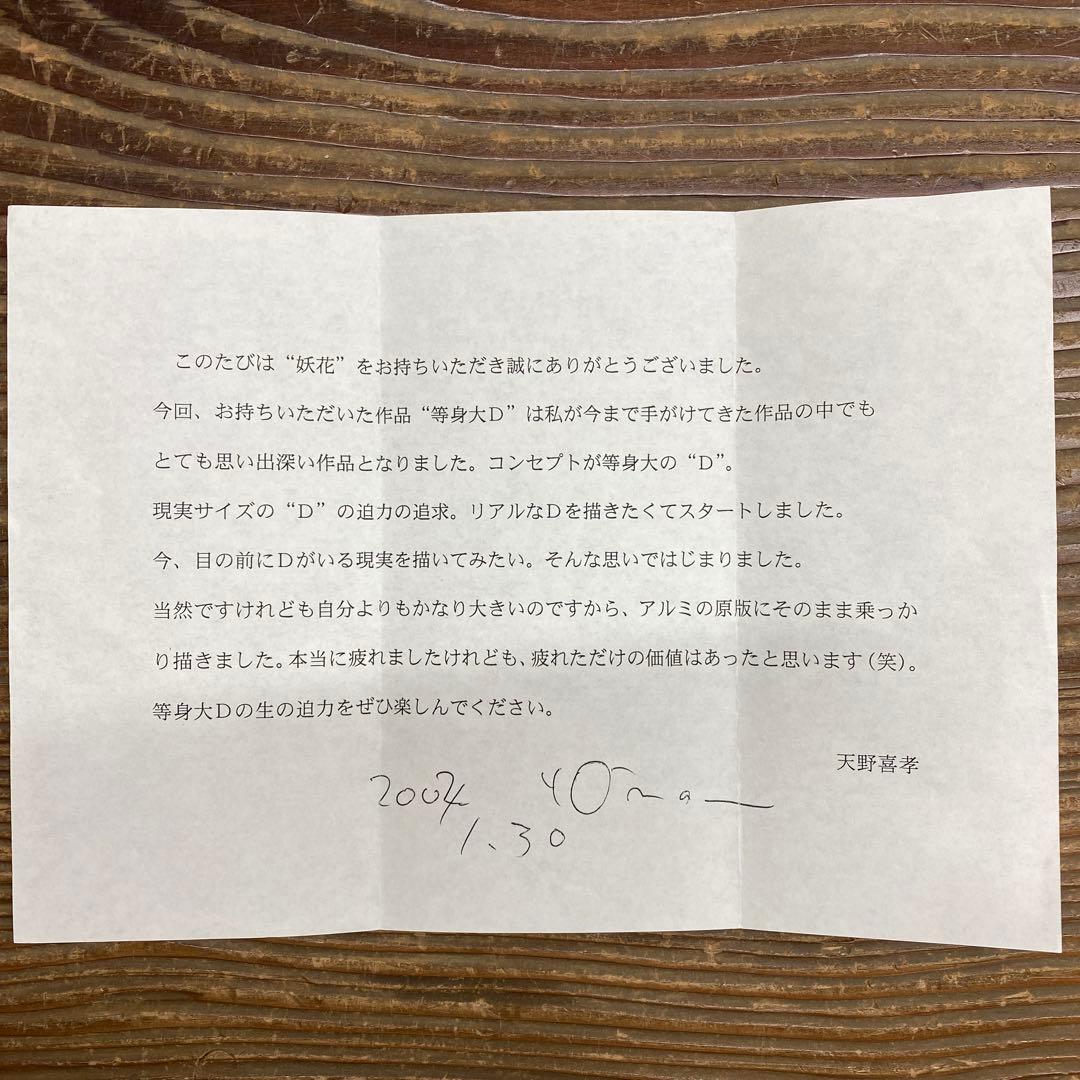 このたびは“妖花”をお持ちいただき誠にありがとうございました。
今回、お持ちいただいた作品“等身大Ｄ”は私が今まで手がけてきた作品の中でも
とても思い出深い作品となりました。コンセプトが等身大の“Ｄ”。
現実サイズの“Ｄ”の迫力の追求。リアルなＤを描きたくてスタートしました。
今、目の前にＤがいる現実を描いてみたい。そんな思いではじまりました。
当然ですけれども自分よりもかなり大きいのですから、アルミの原版にそのまま乗っか
り描きました。本当に疲れましたけれども、疲れただけの価値はあったと思います（笑）。
等身大Ｄの生の迫力をぜひ楽しんでください。
天野喜孝
2004
1.30